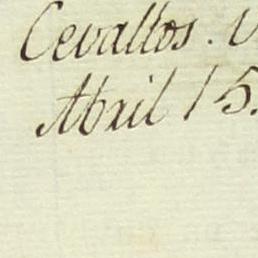 Cevallos. V
Abril 15.